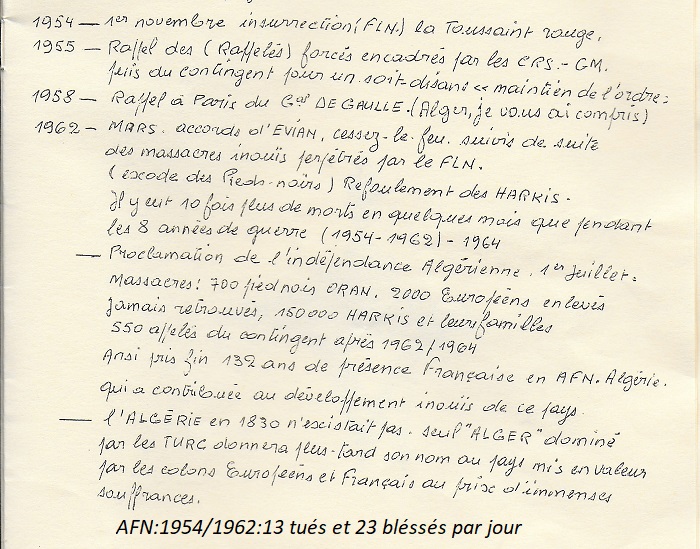 1954 — 1er novembre insurrection (FLN.) la Toussaint rouge,
1955 — Rappel des (Rappelés) forcés encadrés par les CRS.- GM.
puis du contingent pour un soit disans « maintien de l'ordre:
1958 — Rappel à Paris du Gal DE GAULLE. (Alger, je vous ai compris)
1962 — MARS. accords d'EVIAN, cessez-le-feu. suivis de suite
des massacres inouïs perpétrés par le FLN.
(exode des Pieds-noirs) Refoulement des HARKIS.
Il y eut 10 fois plus de morts en quelques mois que pendant
les 8 années de guerre (1954-1962) - 1964
— Proclamation de l'indépendance Algérienne. 1er Juillet.
Massacres: 700 pied nois ORAN. 2000 Européens enlevés
Jamais retrouvés, 150000 HARKIS et leurs familles
550 appelés du contingent après 1962/1964
Ansi pris fin 132 ans de présence Française en AFN. Algérie.
qui a contribuée au développement inouïs de ce pays.
— l'ALGÉRIE en 1830 n'existait pas. seul "ALGER" dominé
par les TURC donnera plus-tard son nom au pays mis en valeur
par les colons Européens et Français au prix d'immenses
souffrances.
AFN:1954/1962:13 tués et 23 bléssés par jour